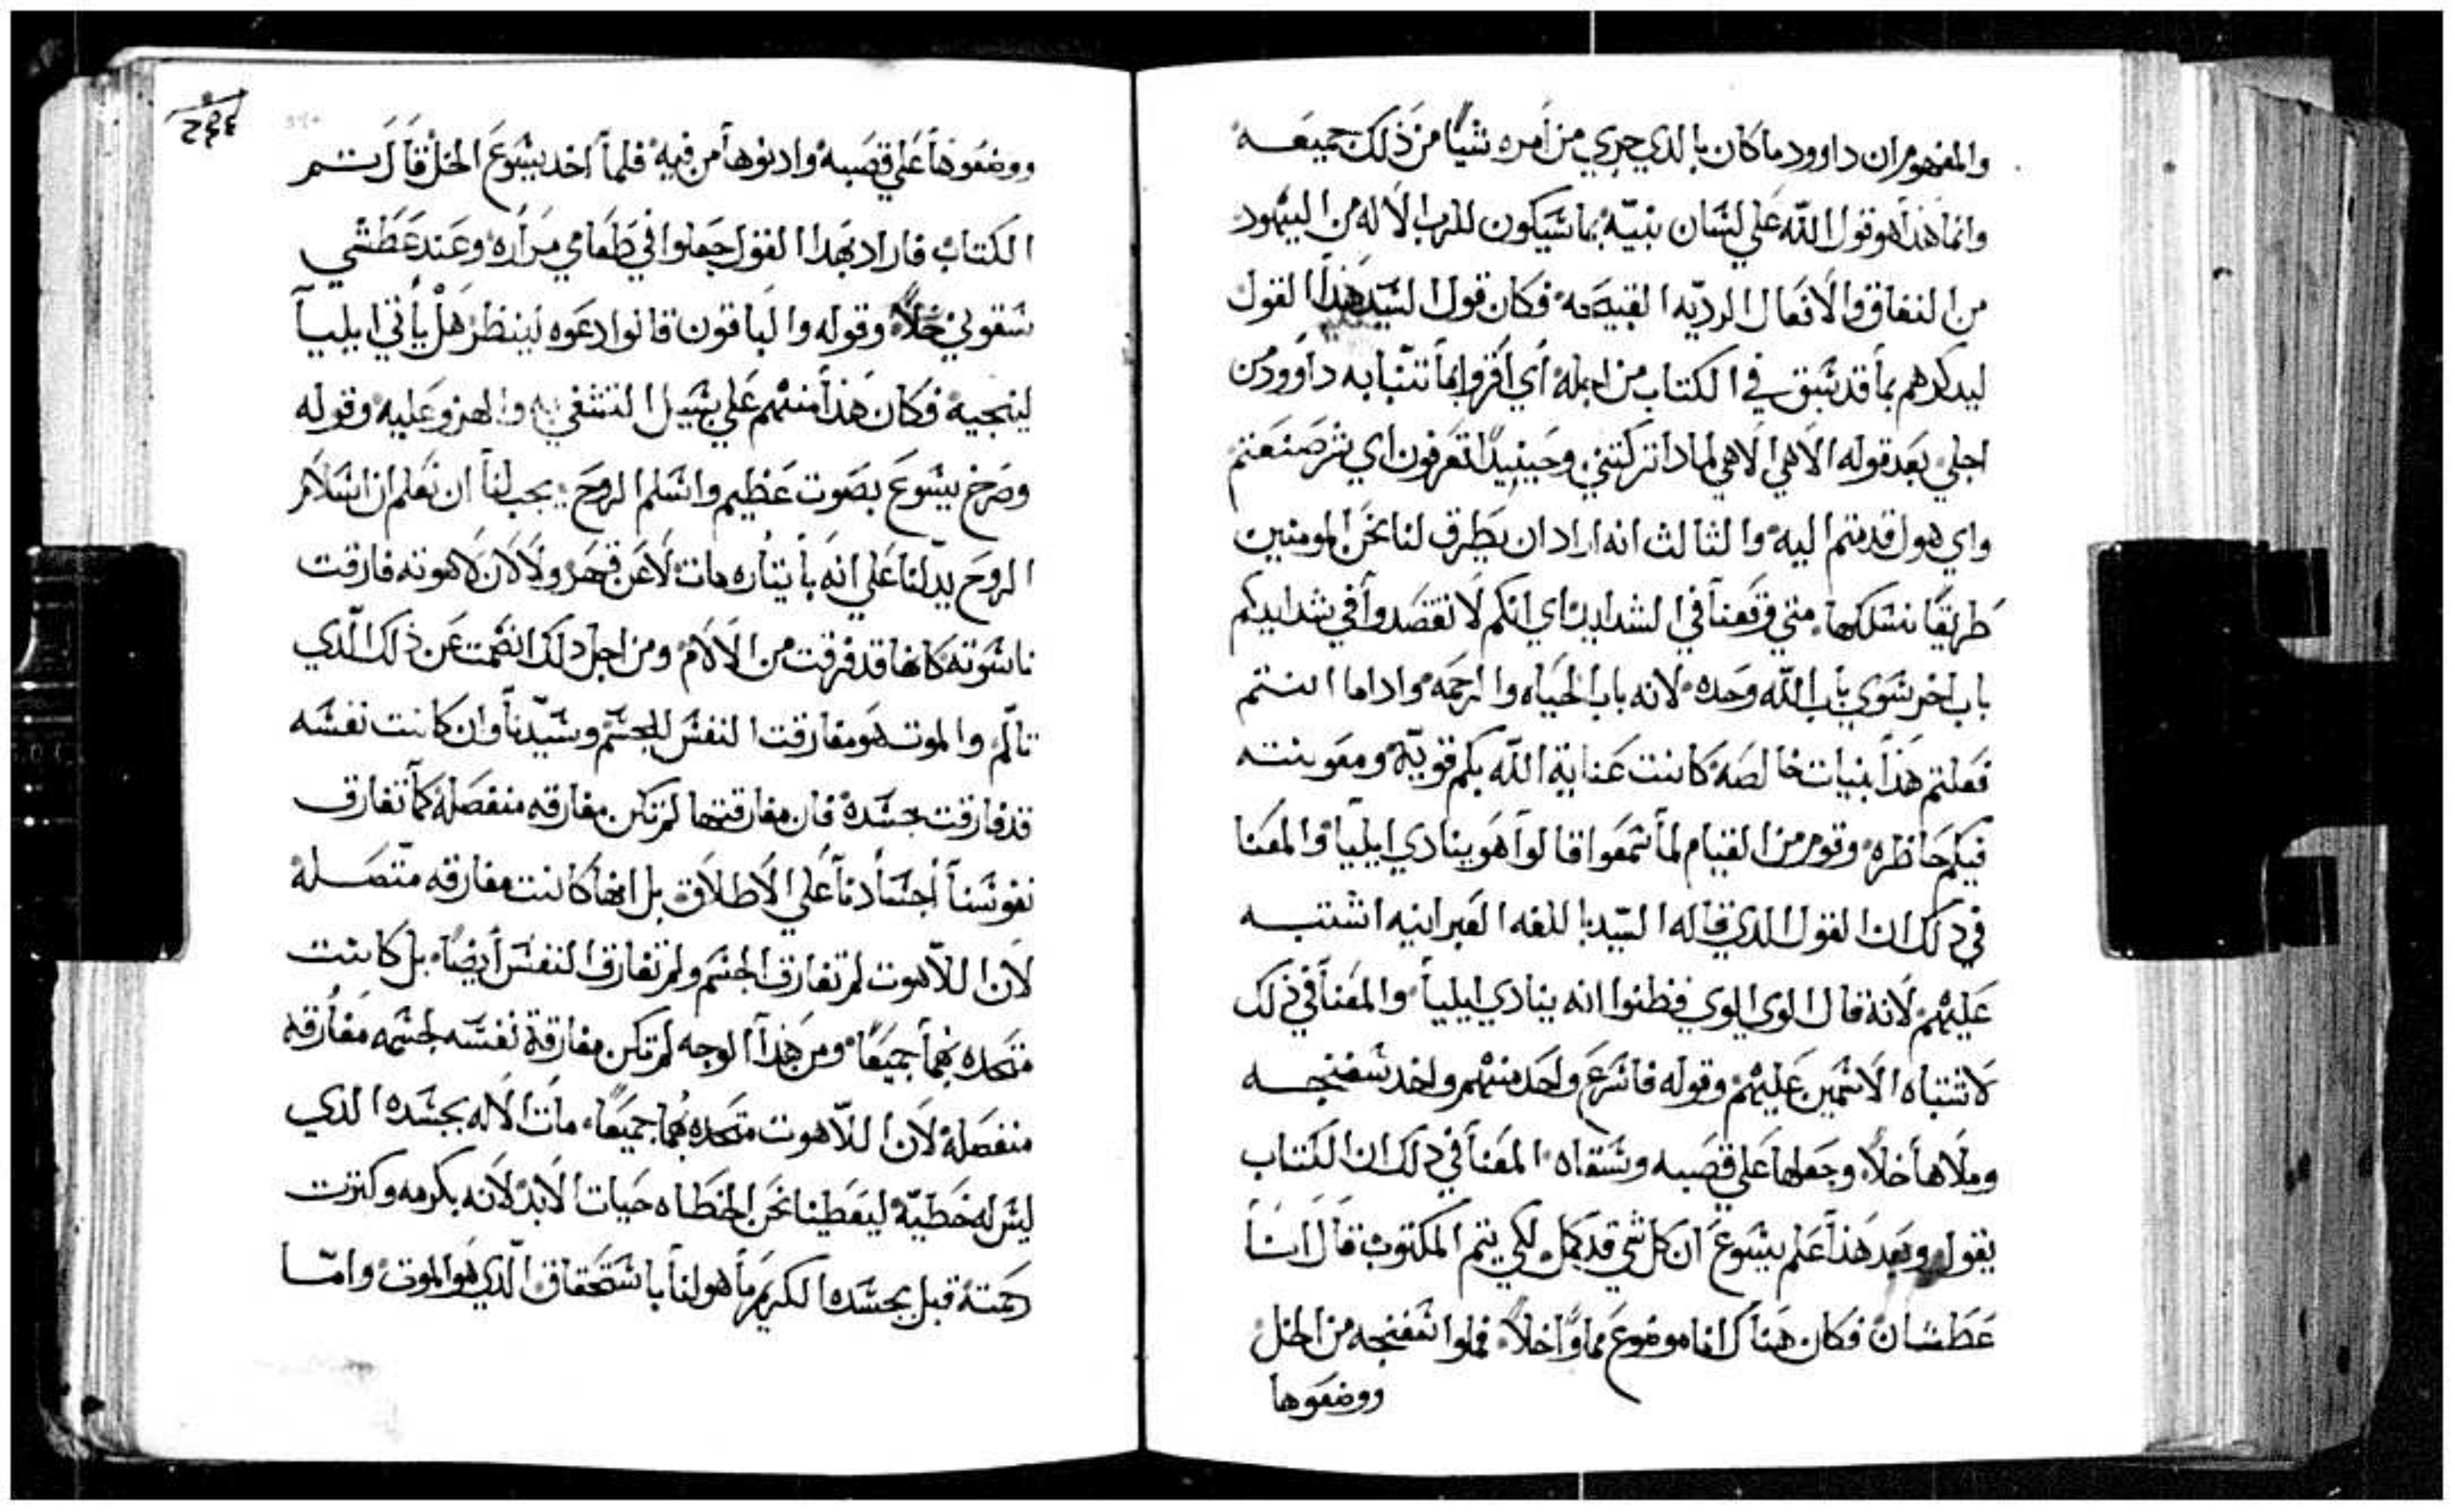 والمفهوم ان داوود ما كان بالدي جري من امره شيًا من ذلك جميعه
وانما هذا هو قول الله علي لسان نبيّه بما سيكون للرب الاله من اليهود
من النفاق والافعال الرديّه القبيحه فكان قول السيد هذا القول
ليدكرهم بما قد سبق في الكتاب من اجله اي اقروا بما تنبا به داوود من
اجلي بعد قوله الاهي الاهي لمادا تركتني وحينيدًا تعرفون اي شر صنعتم
واي هول قدمتم اليه والثالث انه اراد ان يطرق لنا نحن المومنين
طريقًا نسلكها متي وقعنا في الشدايد اي انكم لا تقصدوا في شدايدكم
باب اخر سوي باب الله وحده لانه باب الحياه والرحمه وادا ما انتم
فعلتم هذا بنيات خالصه كانت عناية الله بكم قويّه ومعونته
فيكم حاظره وقوم من القيام لما سمعوا قالوا هو ينادي ايليا والمعنا
في دلك ان القول الدي قاله السيد باللغه العبرانيه اشتبه
عليهم لانه قال الوي الوي فظنوا انه ينادي ايليا والمعنا في ذلك
لاشتباه الاسمين عليهم وقوله فاسرع واحد منهم واخد سفنجه
وملاها خلاً وجعلها علي قصبه وسقاه المعنا في دلك ان الكتاب
يقول وبعد هذا علم يسوع ان كل شي قد كمل لكي يتم المكتوب قال انا
عطشان فكان هناك انا موضوع مماوًا خلاً فملوا سفنجه من الخل
ووضعوها
ووضعوها علي قصبه وادنوها من فيه فلما اخد يسوع الخل قال تم
الكتاب فاراد بهدا القول جعلوا في طعامي مراره وعند عطشي
سقوني خلاً وقوله والباقون قالوا دعوه لينظر هل يأتي ايليا
لينجيه فكان هذا منهم علي سبيل التشفي به والهزو عليه وقوله
وصرخ يسوع بصوت عظيم واسلم الروح يجب لنا ان نعلم ان اسلام
الروح يدلنا علي انه بأيتاره مات لا عن قهر ولا لان لاهوته فارقت
ناسوته كانها قد فرقت من الالام ومن اجل دلك انضمت عن ذلك الّدي
تالّم والموت هو مفارقت النفس للجسم وسيّدنا وان كانت نفسه
قد فارقت جسده فان مفارقتها لم تكن مفارقه منفصله كما تفارق
نفوسنا أجسادنا علي الاطلاق بل انها كانت مفارقه متّصله
لان اللاّهوت لم تفارق الجسم ولم تفارق النفس أيضًا بل كانت
متحده بهما جميعًا ومن هذا الوجه لم تكن مفارقة نفسه لجسمه مفارقه
منفصله لان اللاّهوت متحده بهما جميعًا مات الاله بجسده الدي
ليس له خطيّة ليعطينا نحن الخطاه حيات الابد لانه بكرمه وكترت
رحمته قبل بجسده الكريم ما هو لنا باستحقاق الّدي هو الموت وامّا